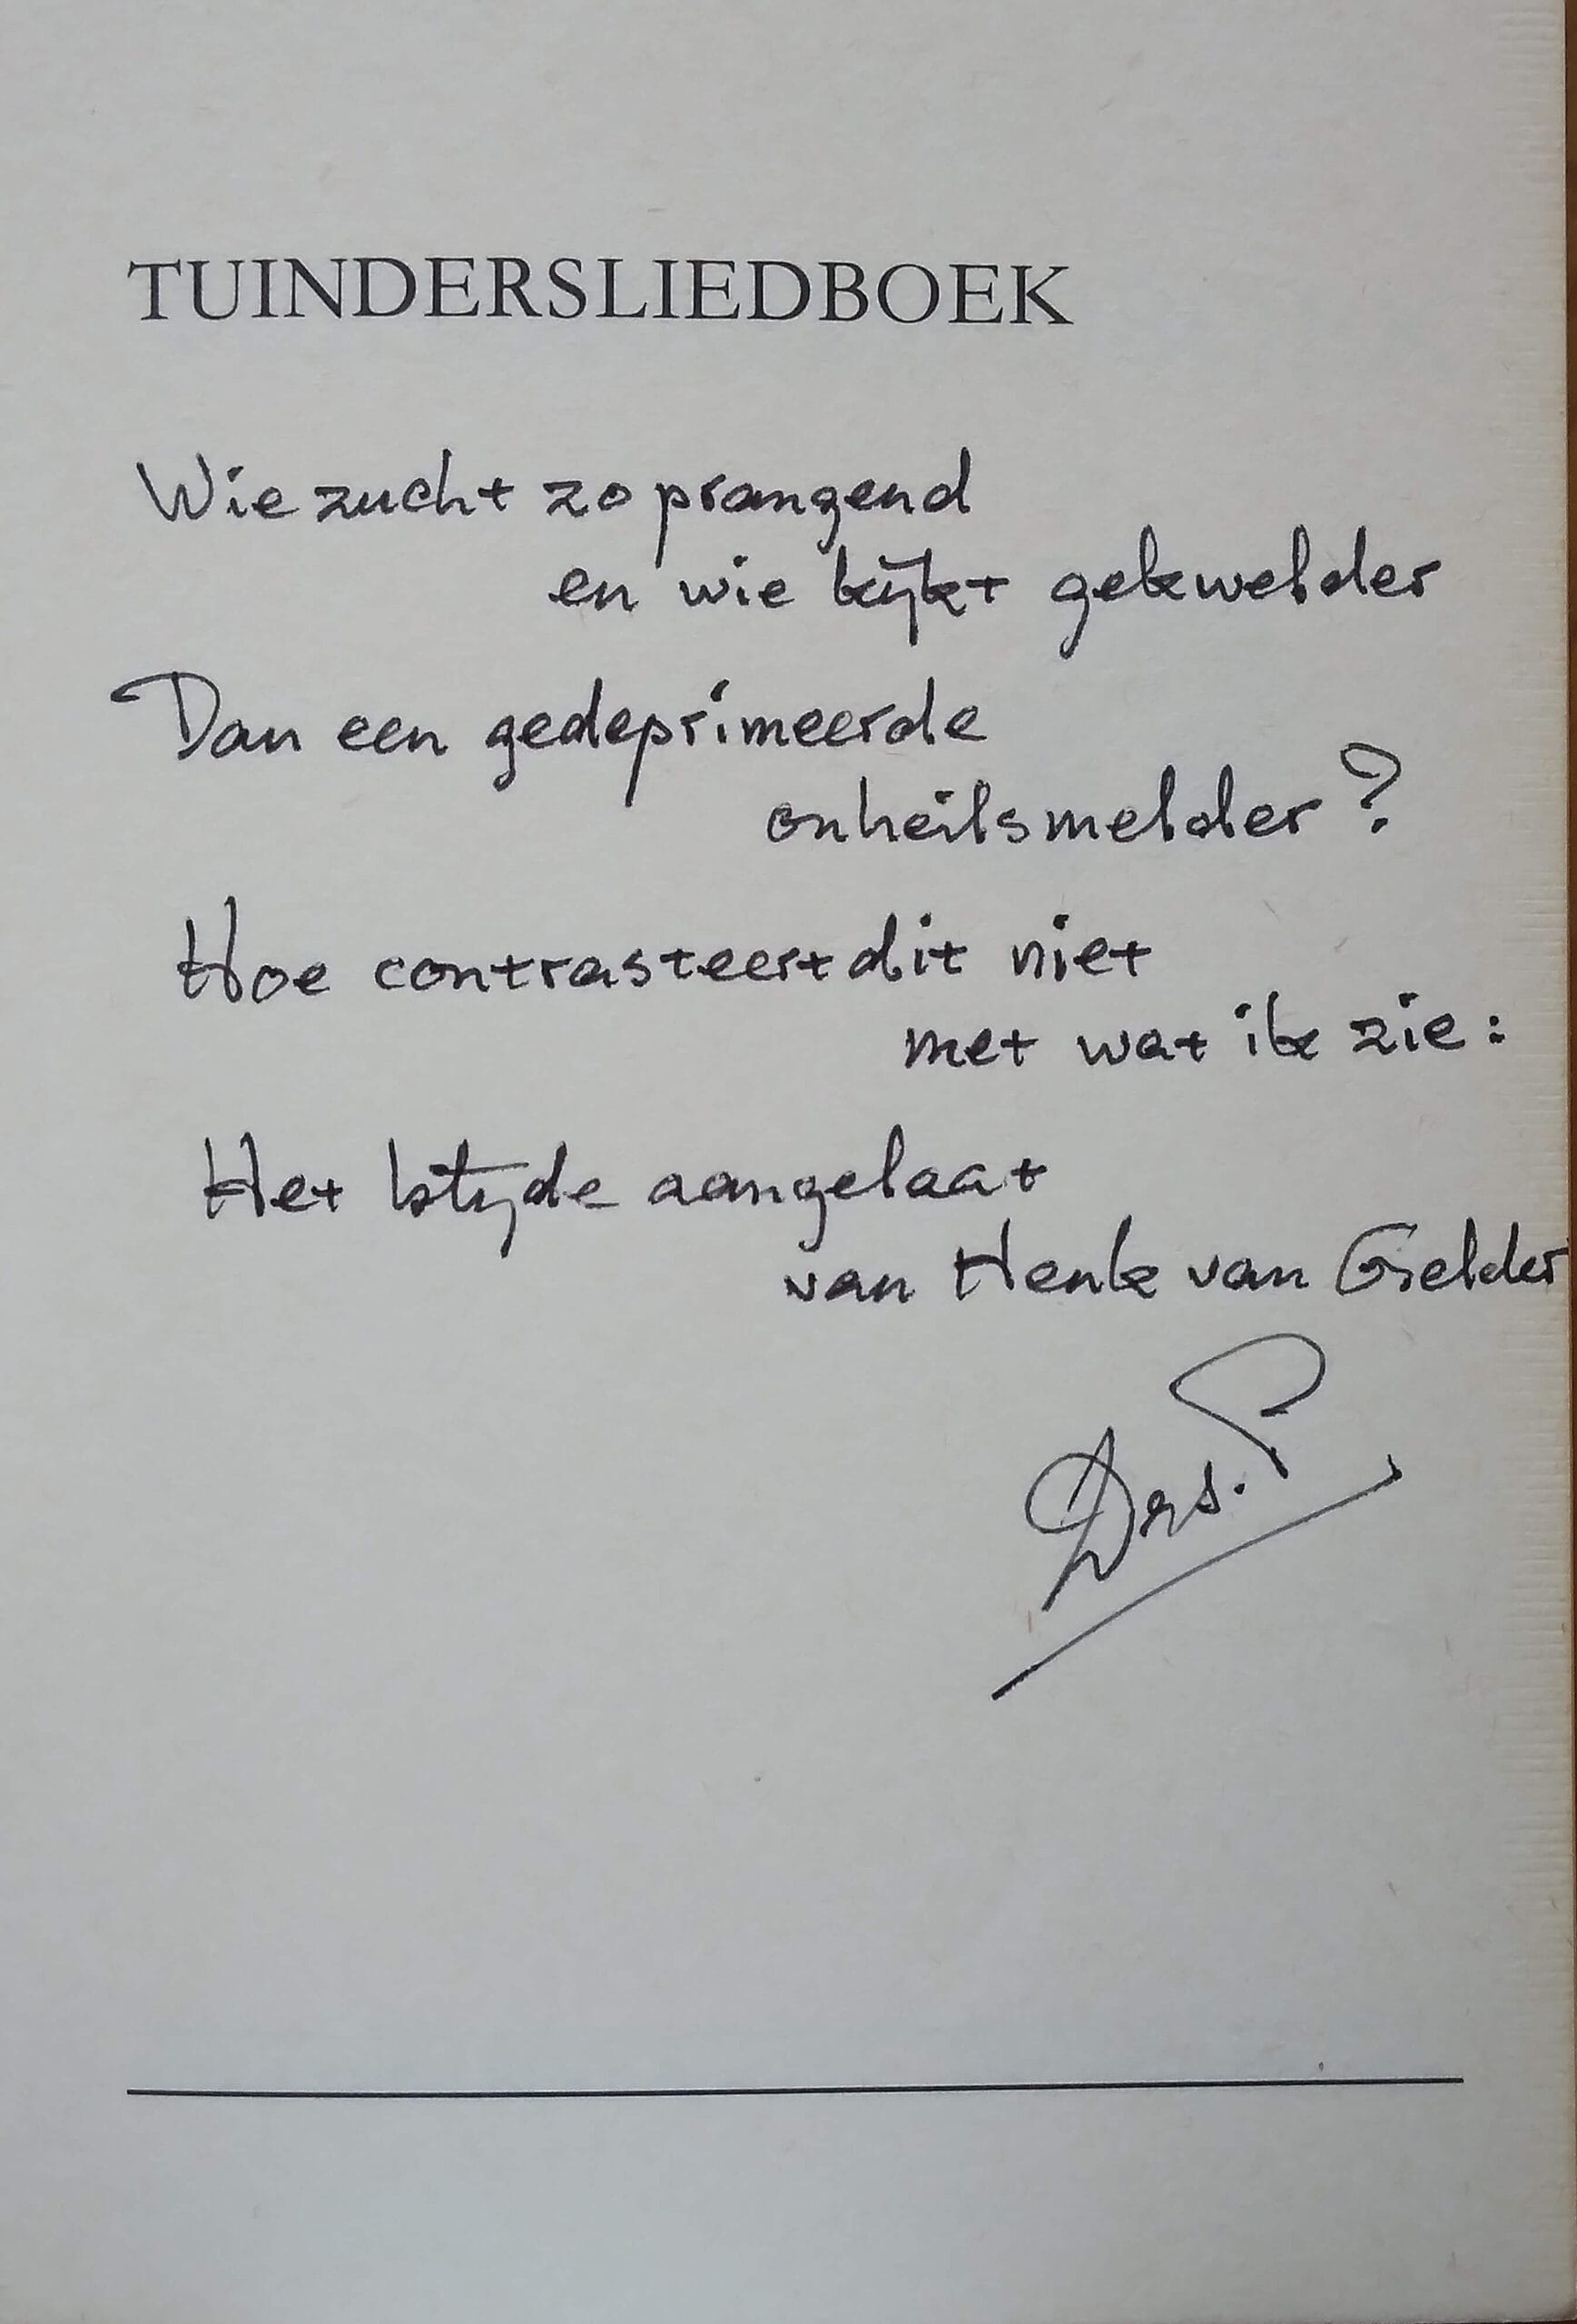 TUINDERSLIEDBOEK
Wie zucht zo prangend
en wie kijkt gekwelder
Dan een gedeprimeerde
onheilsmelder?
Hoe contrasteert dit niet
met wat ik zie:
Het blijde aangelaat
van Henk van Gelder
Drs. P